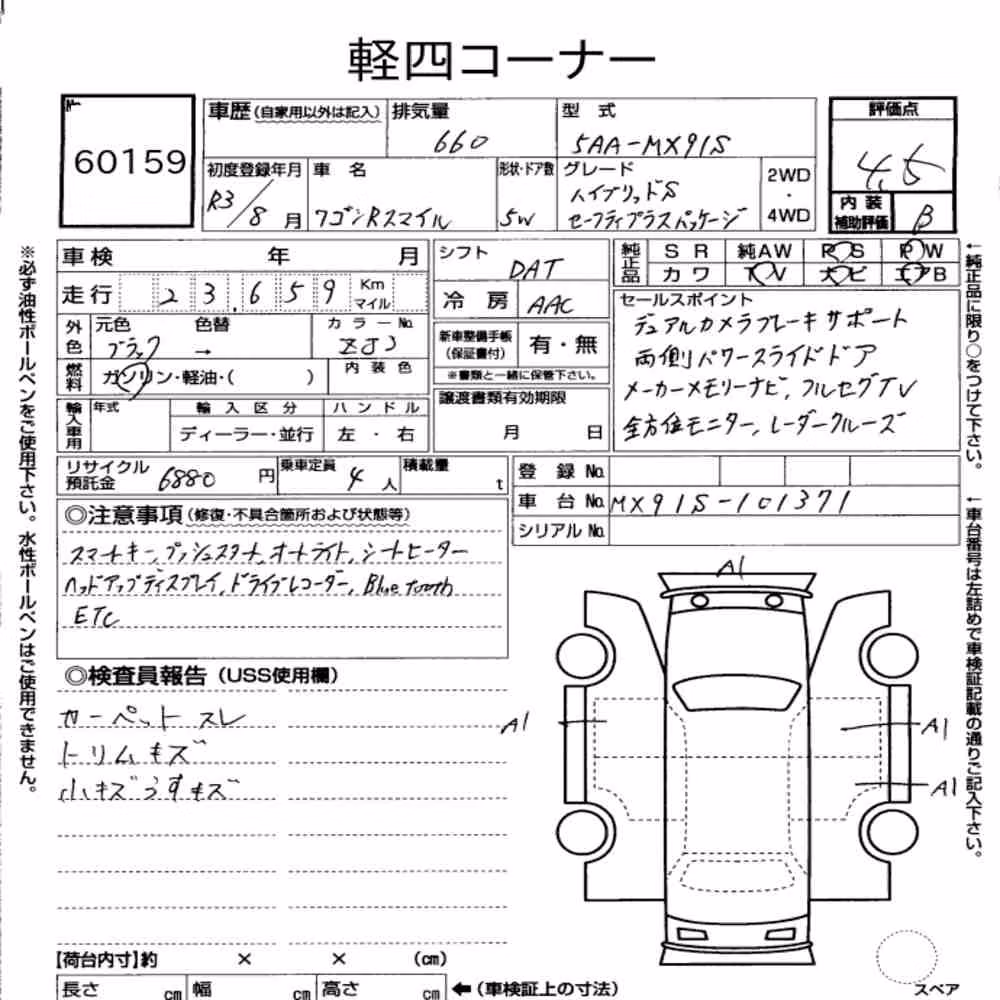 軽四コーナー
60159
車歴(自家用以外は記入)
排気量
660
型 式
5AA-MX91S
評価点
4.5
初度登録年月
R3/8月
車 名
ワゴンRスマイル
形状・ドア数
5W
グレード
ハイブリッドS
セーフティプラスパッケージ
2WD
・
4WD
内 装
補助評価
B
車検 年 月
走行 23,659 Km
マイル
シフト
DAT
冷 房 AAC
純正品
SR 純AW PS PW
カワ TV ナビ エアB
外色
元色 色替
ブラック →
カラーNo.
ZJ3
燃料
ガソリン・軽油・( )
内 装 色
新車整備手帳
(保証書付)
有・無
※書類と一緒に保管下さい。
セールスポイント
デュアルカメラブレーキサポート
両側パワースライドドア
メーカーメモリーナビ, フルセグTV
全方位モニター, レーダークルーズ
輸入車用
年式
輸 入 区 分
ディーラー・並行
ハ ン ド ル
左 ・ 右
譲渡書類有効期限
月 日
リサイクル
預託金
6880 円
乗車定員
4 人
積載量
t
登 録 No.
車 台 No. MX91S-101371
シリアル No.
◎注意事項(修復・不具合箇所および状態等)
スマートキー, プッシュスタート, オートライト, シートヒーター
ヘッドアップディスプレイ, ドライブレコーダー, Bluetooth
ETC
◎検査員報告(USS使用欄)
カーペットスレ
トリムキズ
小キズうすキズ
A1
A1
A1
A1
【荷台内寸】約 × × (cm)
長さ cm 幅 cm 高さ cm ←(車検証上の寸法)
スペア
※必ず油性ボールペンをご使用下さい。水性ボールペンはご使用できません。
←純正品に限り○をつけて下さい。
←車台番号は左詰めで車検証記載の通りご記入下さい。